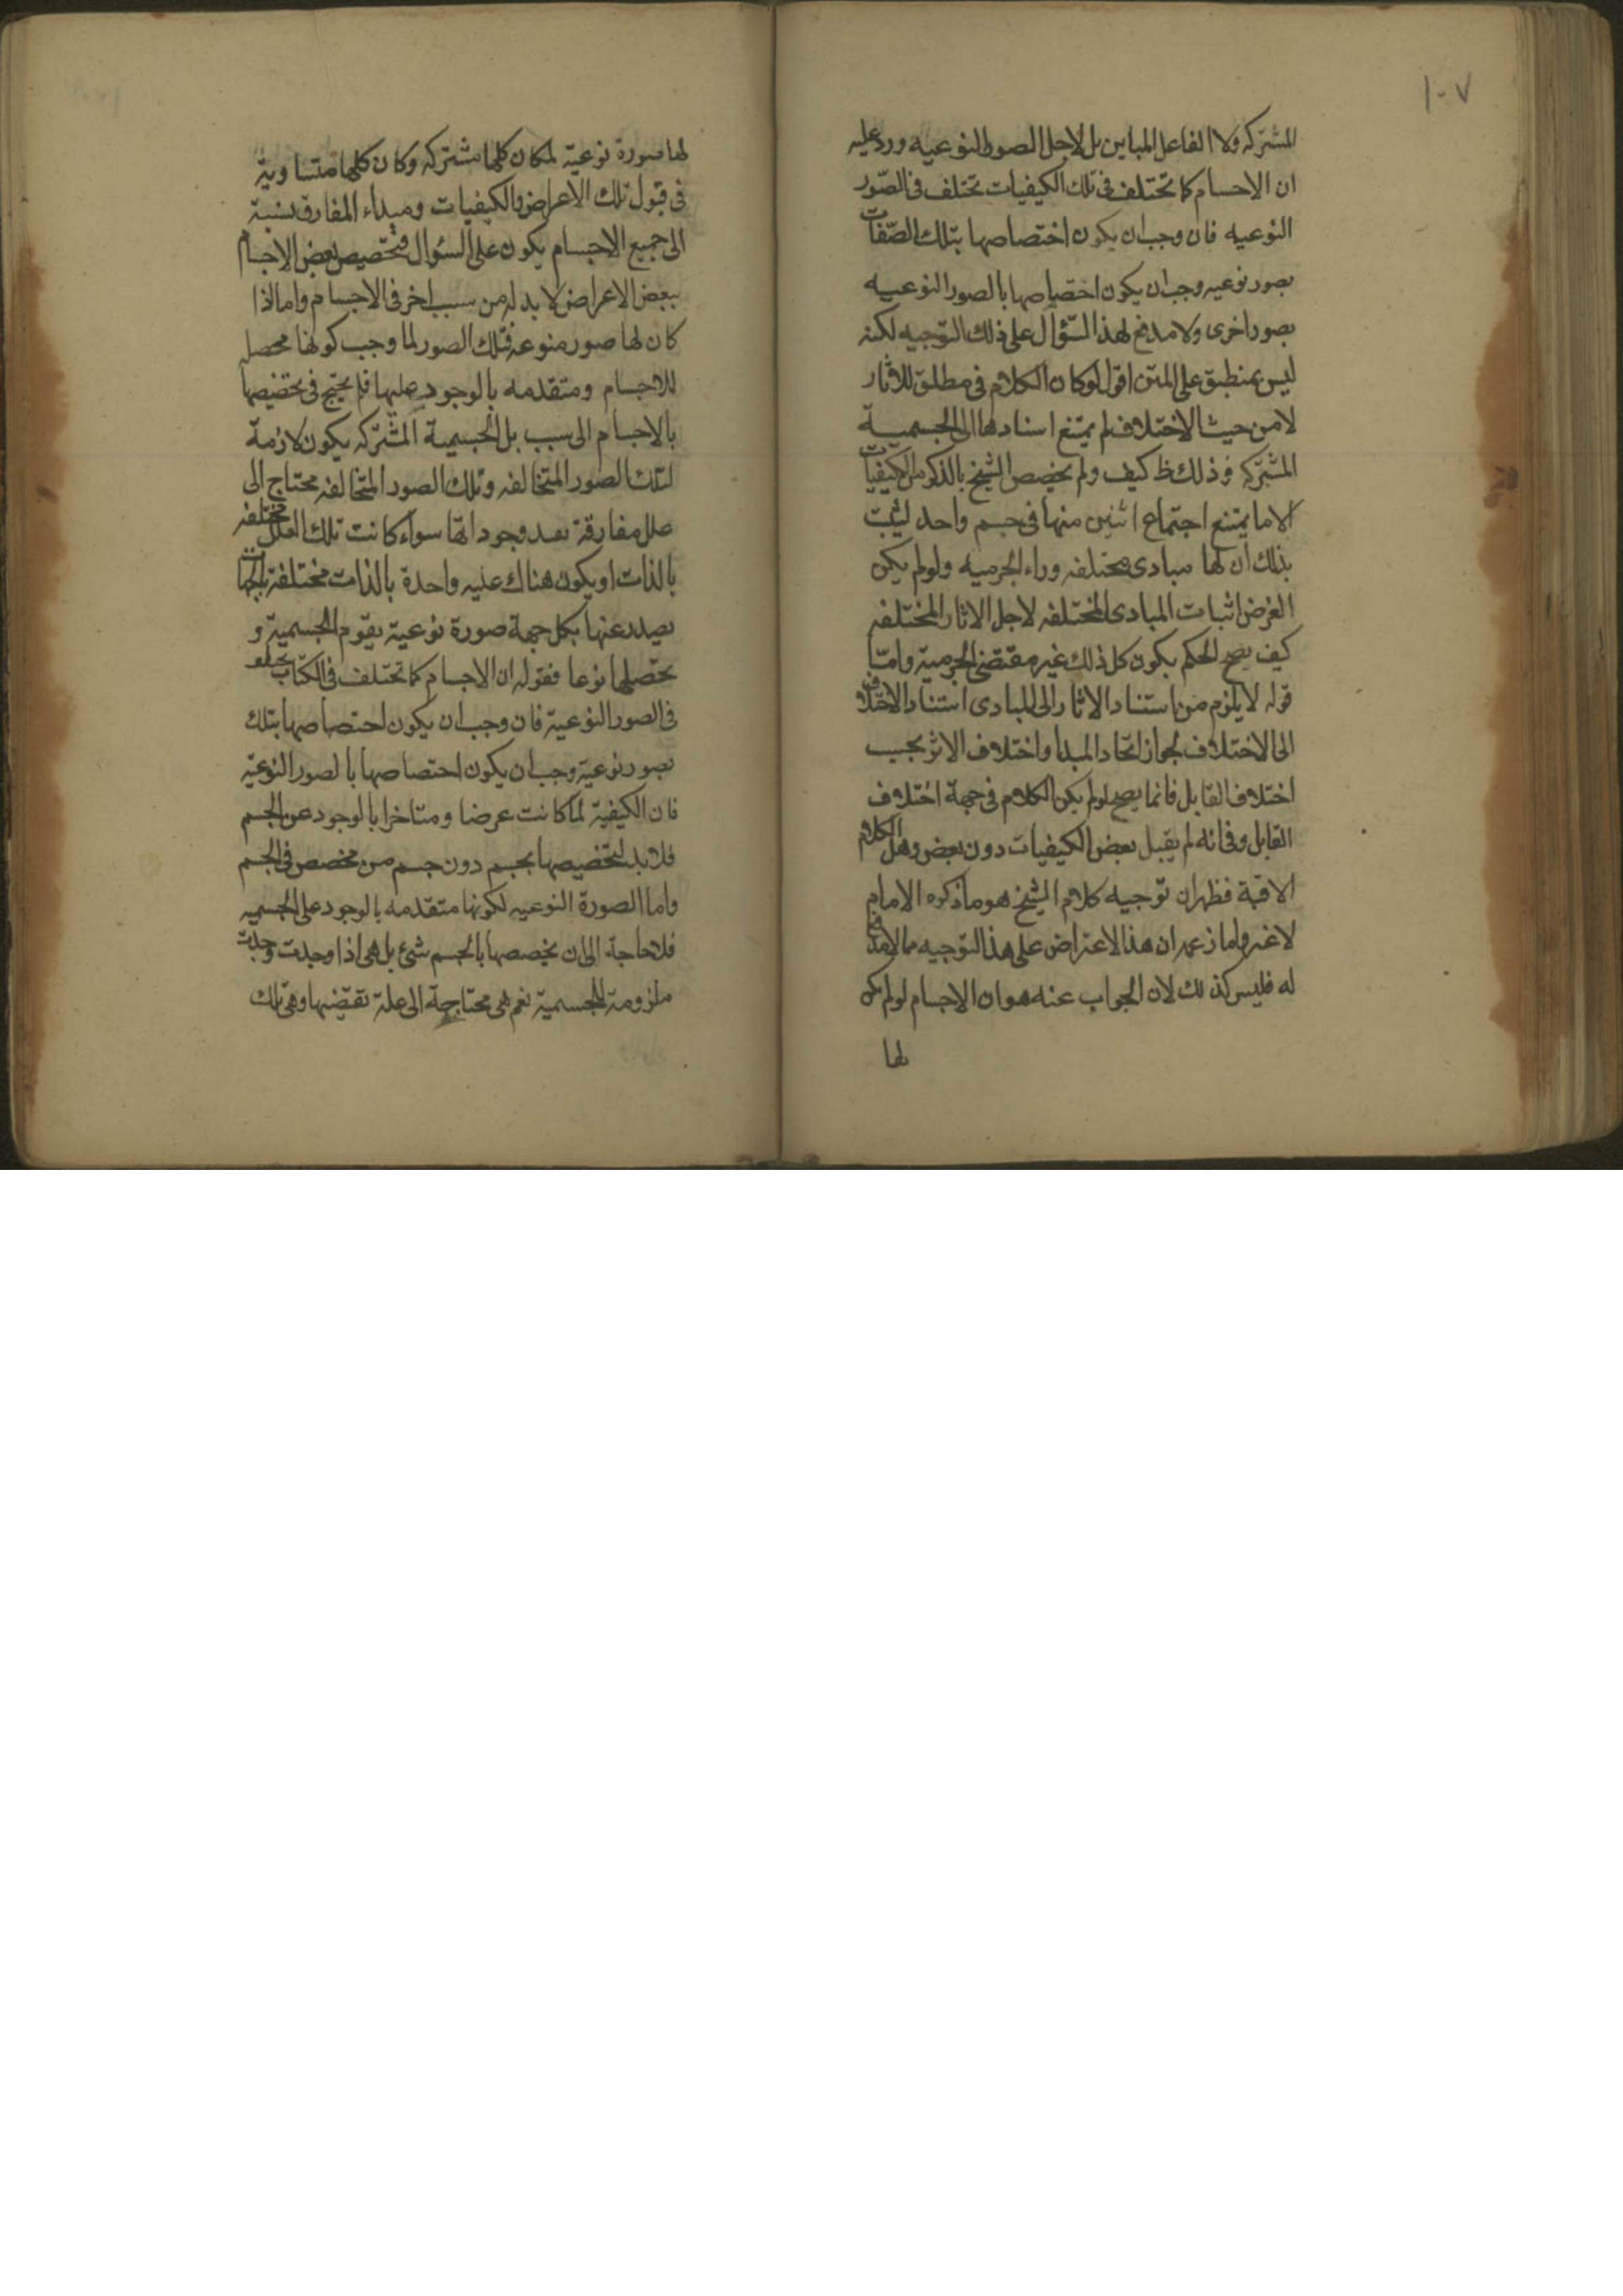 ١٠٧
المشتركه ولا الفاعل المباين بل لاجل الصور النوعيه ورد عليه
ان الاجسام كما تختلف فى تلك الكيفيات تختلف فى الصّور
النوعيه فان وجب ان يكون اختصاصها بتلك الصّفات
بصور نوعيه وجب ان يكون اختصاصها بالصور النوعيه
بصور اخرى ولا مدفع لهذا السّؤال على ذلك التّوجيه لكنه
ليس بمنطبق على المتن اقول لو كان الكلام فى مطلق للاثار
لا من حيث الاختلاف لم يمتنع اسنادها الى الجسميـة
المشتركه وذلك ظ كيف ولم يخصص الشيخ بالذكر من الكيفيات
الا ما يمتنع اجتماع اثنين منها فى جسم واحد ليثبت
بذلك ان لها مبادى مختلفه وراء الجرميه ولو لم يكن
الغرض اثبات المبادى المختلفه لاجل الاثار المختلفه
كيف يصح الحكم بكون كل ذلك غير مقتضى الجرمية وامّا
قوله لا يلزم من استناد الاثار الى المبادى استناد الاختلاف
الى الاختلاف لجواز اتحاد المبدا واختلاف الاثر بحسب
اختلاف القابل فانما يصح لو لم يكن الكلام فى جهة اختلاف
القابل وفى انه لم يقبل بعض الكيفيات دون بعض وهل الكلام
الا فية فظهر ان توجيه كلام الشيخ هو ما ذكره الامام
لا غير واما زعمه ان هذا الاعتراض على هذا التوجيه مما لا مدفع
له فليس كذلك لان الجواب عنه هو ان الاجسام لو لم يكن
لها
لها صورة نوعية لمكان كلها مشتركه وكان كلها متساوية
فى قبول تلك الاعراض والكيفيات ومبداء المفارق بنسبة
الى جميع الاجسام يكون على السؤال فتخصيص بعض الاجسام
ببعض الاعراض لا بد له من سبب اخر فى الاجسام واما اذا
كان لها صور منوعه فتلك الصور لما وجب كونها محصله
للاجسام ومتقدمه بالوجود عليها فلم يحتج فى تخصيصها
بالاجسام الى سبب بل الجسمية المشتركه يكون لازمة
لتلك الصور المتخالفه وتلك الصور المتخالفه محتاج الى
علل مفارقة بعد وجوداتها سواء كانت تلك العلل مختلفه
بالذات او يكون هناك عليه واحدة بالذات مختلفة بالجهات
يصدر عنها بكل جهة صورة نوعية يقوم الجسمية و
تحصلها نوعا فقوله ان الاجسام كما تختلف فى الكتاب
فى الصور النوعية فان وجب ان يكون احتصاصها بتلك
بصور نوعية وجب ان يكون احتصاصها بالصور النوعيّة
فان الكيفية لما كانت عرضا ومتاخرا بالوجود عن الجسم
فلا بد لتخصيصها بجسم دون جسم من مخصص فى الجسم
واما الصورة النوعيه لكونها متقدمه بالوجود على الجسميه
فلا حاجة الى ان يخصصها بالجسم شئ بل هى اذا وجدت وجدت
ملزومة للجسمية نعم هى محتاجة الى علة تقتضيها وهى تلك